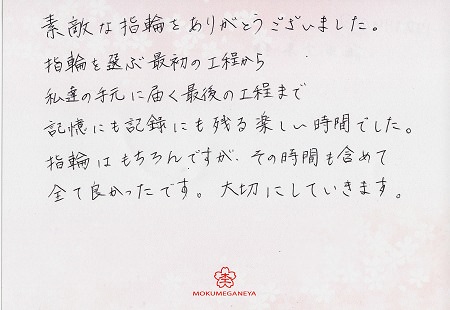 素敵な指輪をありがとうございました。
指輪を選ぶ最初の工程から
私達の手元に届く最後の工程まで
記憶にも記録にも残る楽しい時間でした。
指輪はもちろんですが、その時間も含めて
全て良かったです。大切にしていきます。
MOKUMEGANEYA